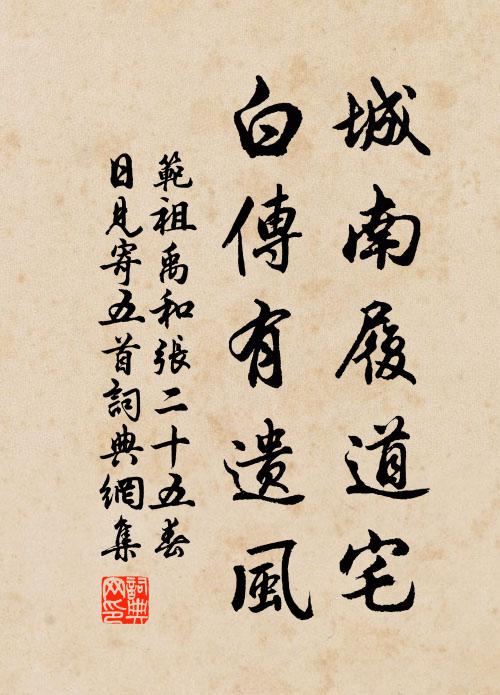 城南履道宅
白傳有遺風
範祖禹和張二十五春
日見寄五首詞典網集
詞典
网印